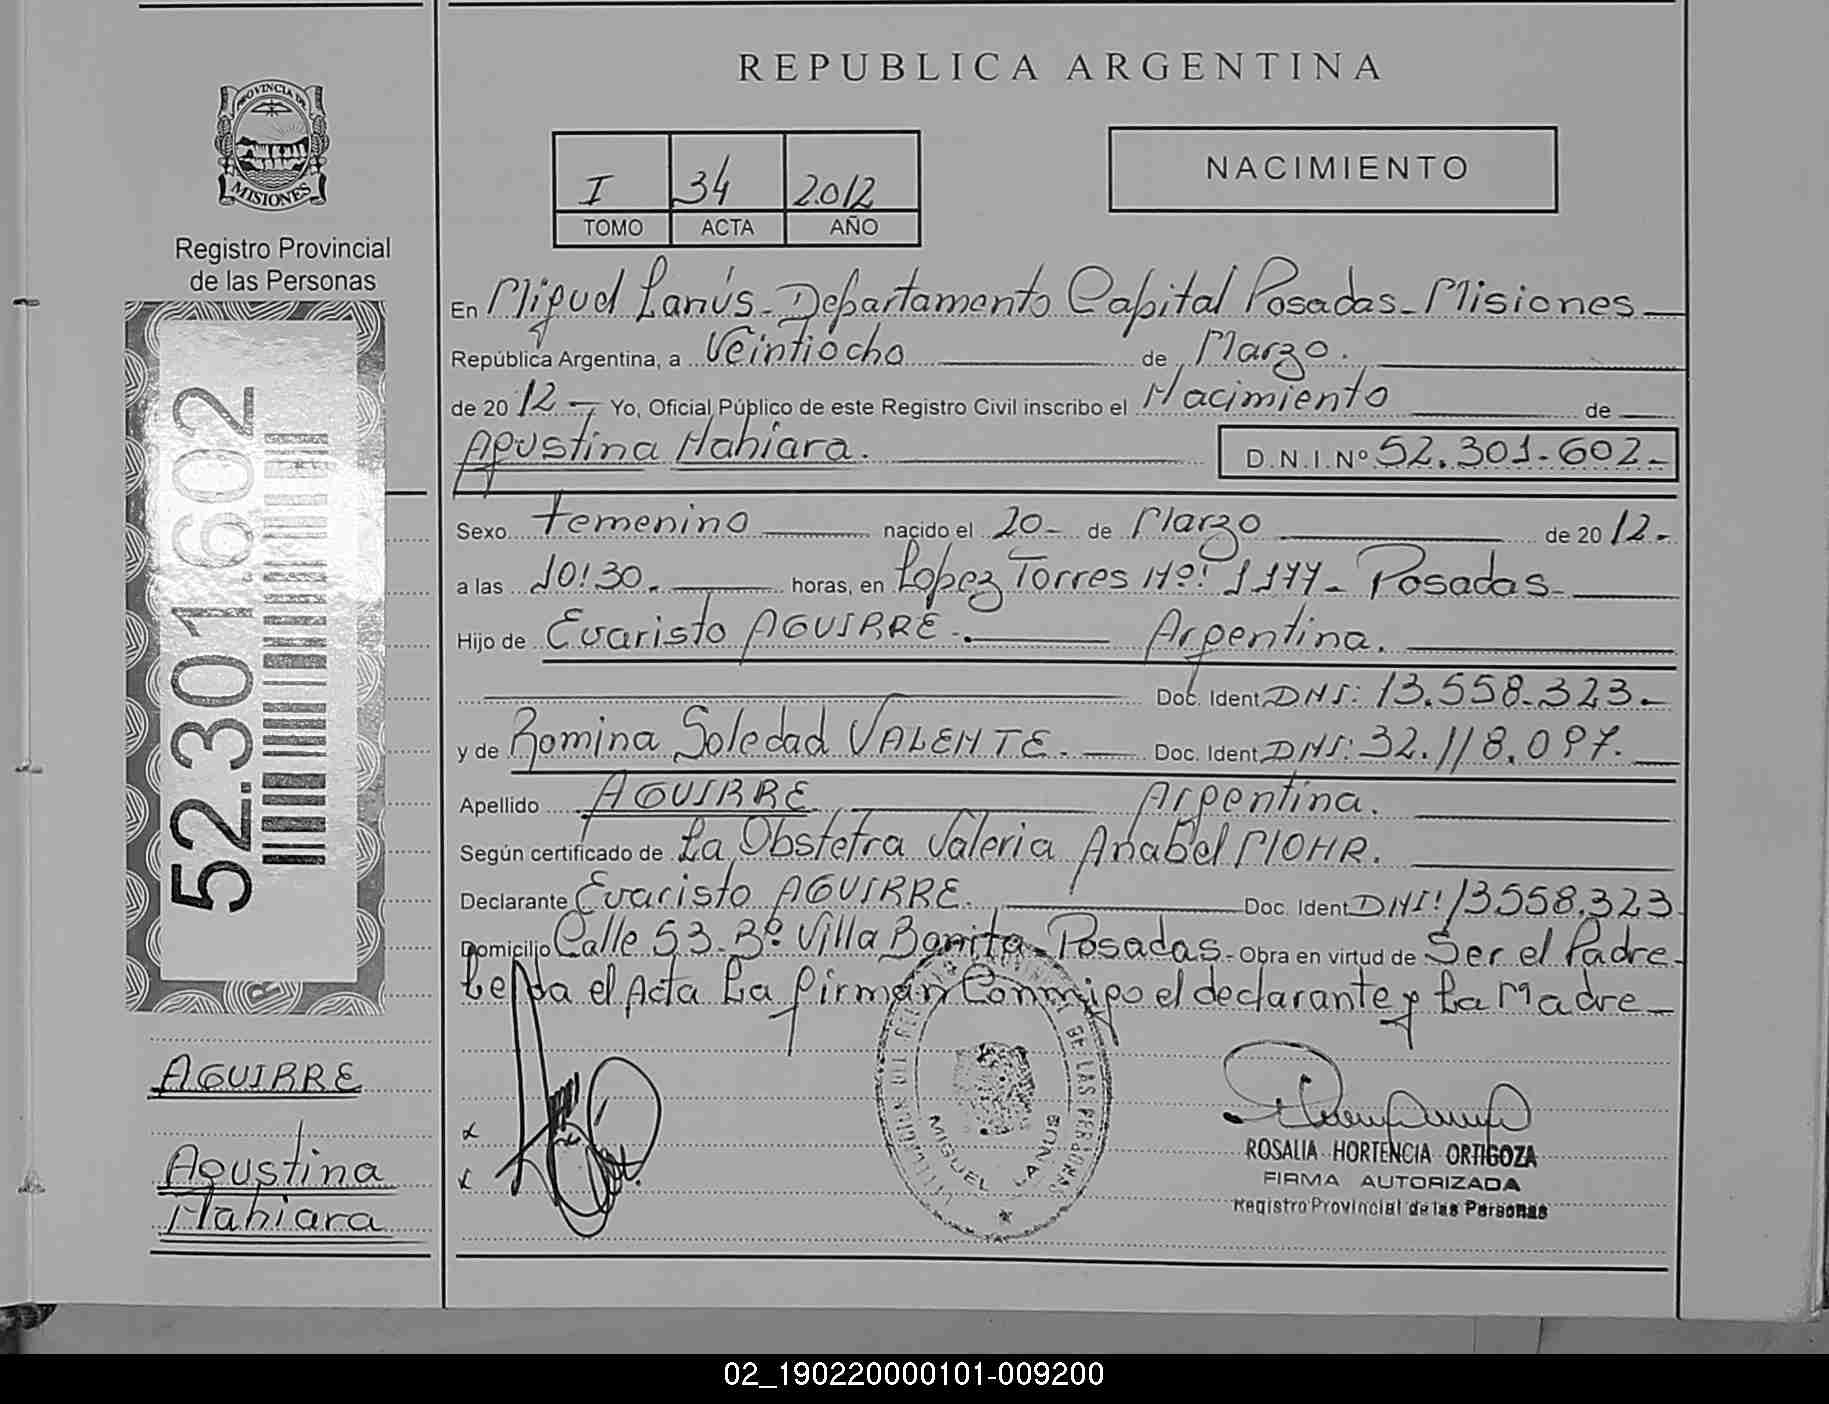 REPUBLICA ARGENTINA
PROVINCIA DE
MISIONES
Registro Provincial
de las Personas
52.301.602
I 34 2.012
TOMO ACTA AÑO
NACIMIENTO
En Miguel Lanús - Departamento Capital Posadas - Misiones
República Argentina, a Veintiocho de Marzo.
de 20 12 - Yo, Oficial Público de este Registro Civil inscribo el Nacimiento de
Agustina Nahiara. D.N.I.Nº 52.301.602-
Sexo Femenino nacido el 20- de Marzo de 20 12-
a las 10:30. horas, en Lopez Torres Nº: 1177- Posadas-
Hijo de Evaristo AGUIRRE. Argentina.
Doc. Ident DNI: 13.558.323-
y de Romina Soledad VALENTE. Doc. Ident DNI: 32.118.097.
Apellido AGUIRRE Argentina.
Según certificado de La Obstetra Valeria Anabel MOHR.
Declarante Evaristo AGUIRRE. Doc. Ident DNI: 13558.323
Domicilio Calle 53- Bº Villa Bonita- Posadas- Obra en virtud de Ser el Padre-
Leida el Acta La firman Conmigo el declarante y La Madre-
DE LAS PERSONAS
MIGUEL LANUS
AGUIRRE
Agustina
Nahiara
ROSALIA HORTENCIA ORTIGOZA
FIRMA AUTORIZADA
Registro Provincial de las Personas
02_190220000101-009200